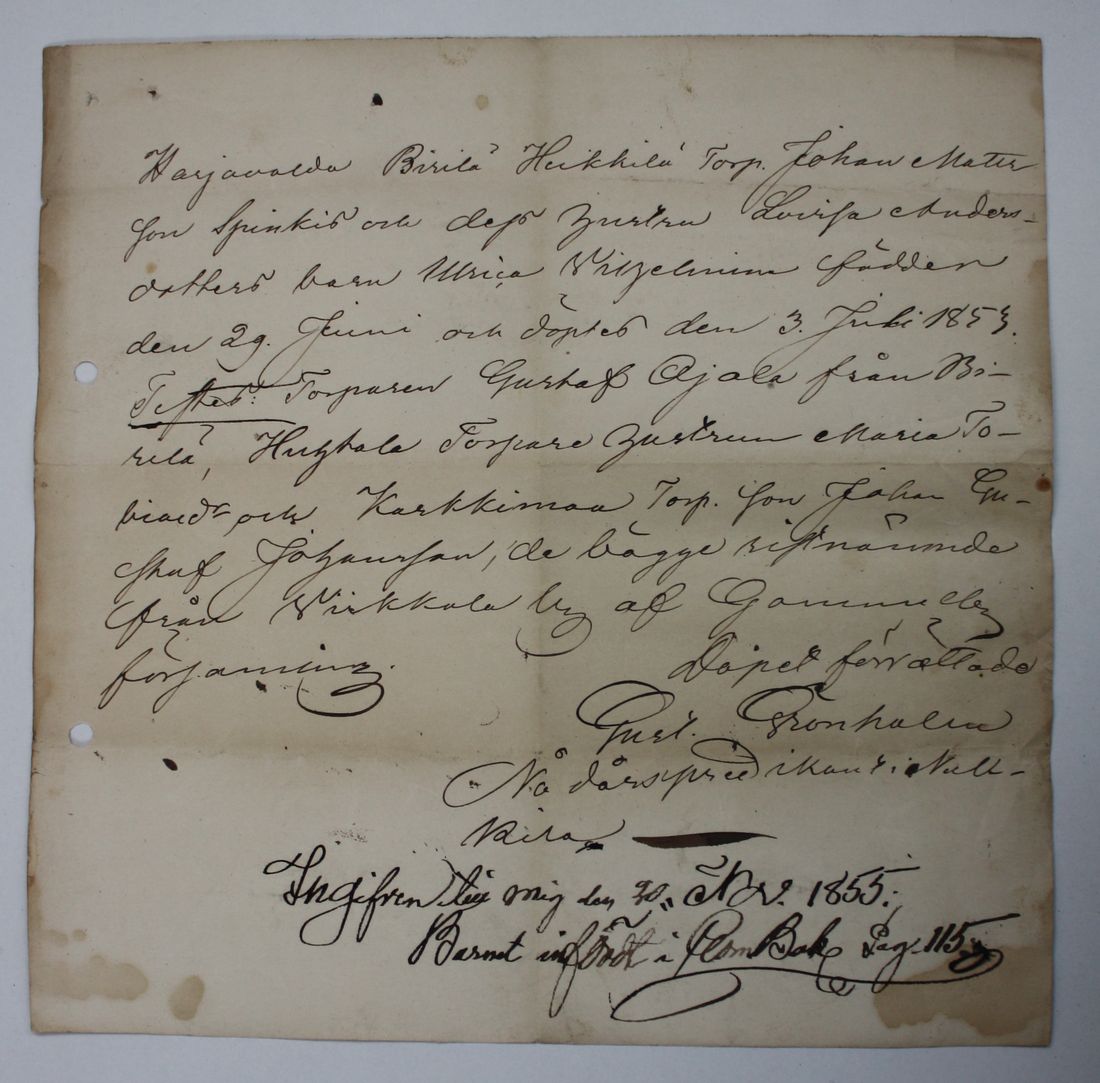 Harjavalda Birilä Heikkilä Torp. Johan Matts
son Spinkis och dess hustru Lovisa Anders-
dotters barn Ulrica Vilhelmina föddes
den 29. Juni och döptes den 3. Juli 1853.
Testes: Torparen Gustaf Ojala från Bi-
rilä, Huhtala Torpare hustrun Maria To-
biaed:r och Karkkimaa Torp. son Johan Gu-
staf Johansson, de bägge sistnämnde
från Virkkala by af Gammelby
församling. Döpet förrättade
Gust. Grönholm
Nådårspredikant i Nakk-
kila
Ingifven till mig den 20. Nov. 1855.
Barnet infördt i Com Bok Pag. 115.